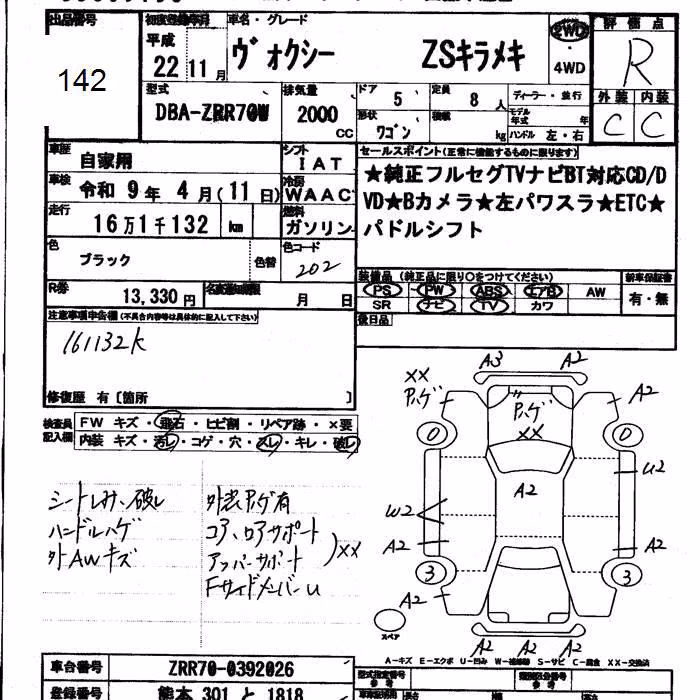 出品番号
142
初度登録年月
平成
22 11月
車名・グレード
ヴォクシー ZSキラメキ
2WD
・
4WD
評価点
R
外装 内装
C C
型式
DBA-ZRR70W
排気量
2000
CC
ドア
5
定員
8人
ディーラー・並行
形状
ワゴン
積載
kg
モデル年式 年
ハンドル 左・右
車歴
自家用
シフト
IAT
車検
令和 9年 4月(11日)
冷房
WAAC
走行
16万1千132 km
燃料
ガソリン
色
ブラック
色替
色コード
202
R券
13,330円
名変通知期限
月 日
セールスポイント(正常に機能するものに限ります)
★純正フルセグTVナビBT対応CD/D
VD★Bカメラ★左パワスラ★ETC★
パドルシフト
装備品 (純正品に限り○をつけてください)
新車保証書
PS PW ABS エアB AW
SR ナビ TV カワ
有・無
後日品
注意事項申告欄(不具合内容等は具体的に記入して下さい)
161132k
修復歴 有〔箇所 〕
検査員
記入欄
FW キズ・飛石・ヒビ割・リペア跡・×要
内装 キズ・汚レ・コゲ・穴・スレ・キレ・破レ
シートしみ、破れ
ハンドルハゲ
外AWキズ
外装Pハゲ有
コア、ロアサポート
アッパーサポート
XX
FサイドメンバーU
A3 A2
XX
Pハゲ
Pハゲ
XX
A2
0 0
U2
A2
W2
A2 A2
3 3
A2 A2
スペア
A2 A2 A2
A-キズ E-エクボ U-凹み W-補修跡 S-サビ C-腐食 XX-交換済
車台番号
ZRR70-0392026
登録番号
熊本 301 と 1818
型式指定番号
参考
類別区分番号
参考